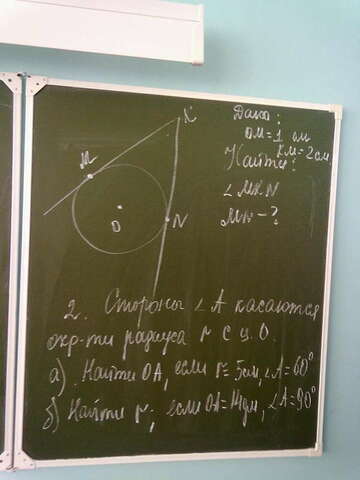 K
Дано:
OM = 1 см
KM = 2 см
Найти:
∠ MKN
MN - ?
M
N
O
2. Стороны ∠A касаются
окр-ти радиуса r с ц. O.
а) Найти OA, если r = 5см, ∠A = 60°
б) Найти r, если OA = 14дм, ∠A = 90°